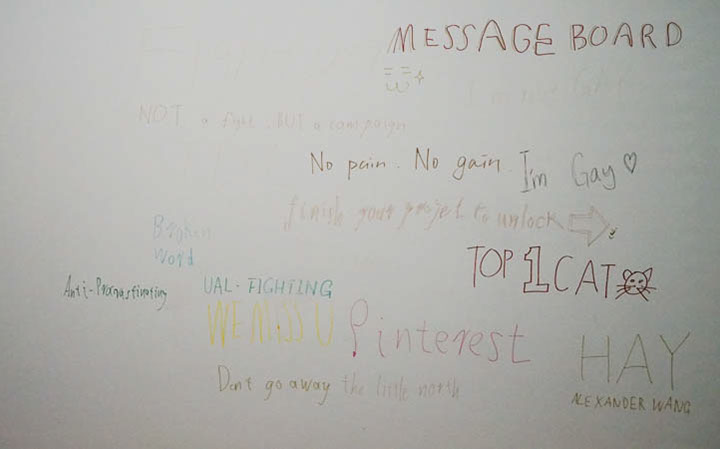 MESSAGE BOARD
NOT a fight. BUT a campaign
No pain. No gain.
I'm Gay
finish your project to unlock
Broken
Word
TOP 1 CAT
Anti-Procrastinating
UAL-FIGHTING
WE MISS U
Pinterest
HAY
ALEXANDER WANG
Don't go away the little north